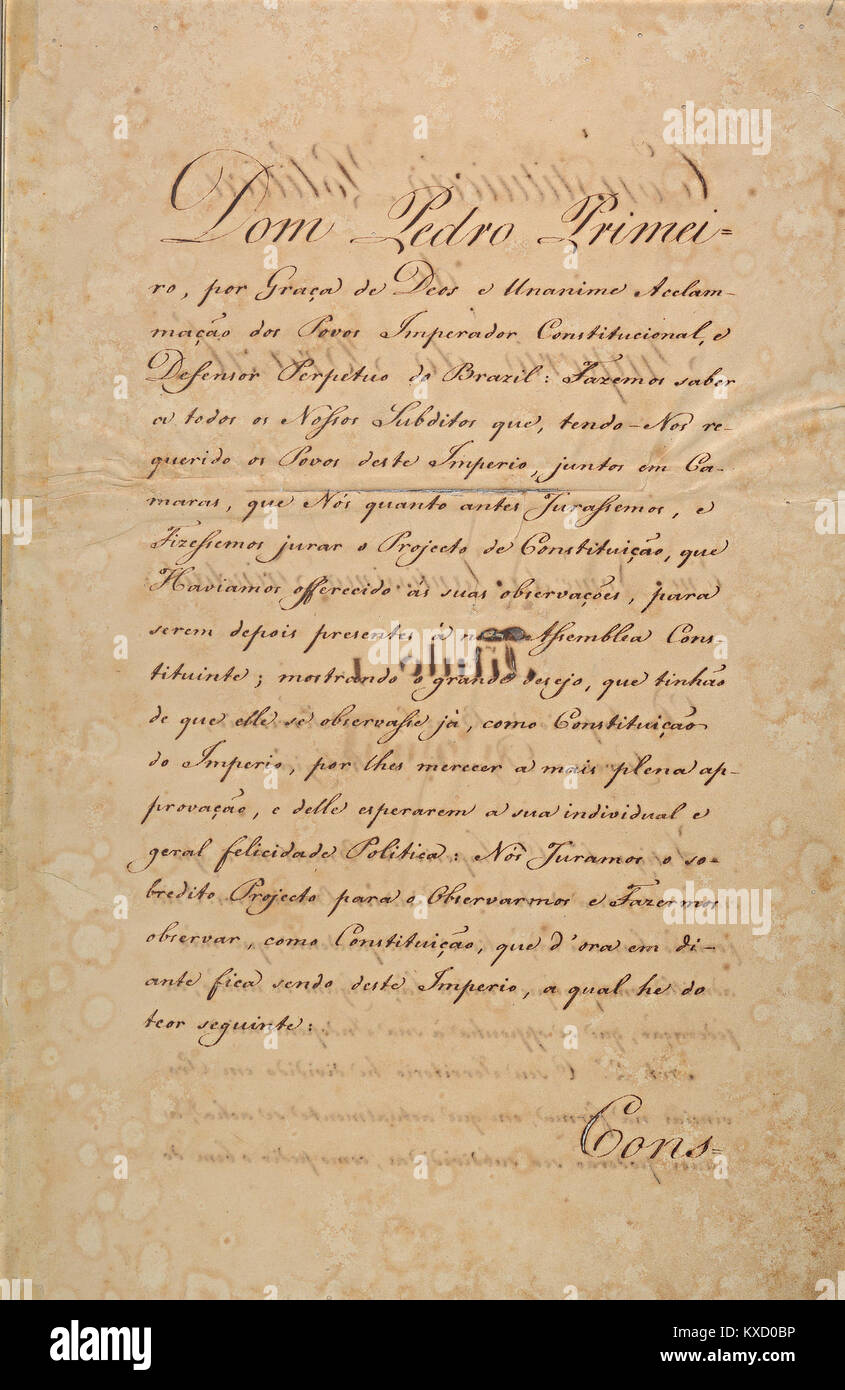 Dom Pedro Primei=
ro, por Graça de Deos e Unanime Acelam-
mação dos Povos Imperador Constitucional, e
Defensor Perpetuo do Brazil: Fazemos saber
a todos os Nossos Subditos que, tendo-Nos re-
querido os Povos deste Imperio, juntos em Ca-
maras, que Nós quanto antes Jurassemos, e
Fizessemos jurar o Projecto de Constituição, que
Haviamos offerecido ás suas observações, para
serem depois presentes á Assemblea Cons-
tituinte; mostrando o grande desejo, que tinhão
de que elle se observasse já, como Constituição
do Imperio, por lhes merecer a mais plena ap-
provação, e delle esperarem a sua individual e
geral felicidade Politica: Nós Juramos o so-
bredito Projecto para o Observarmos e Fazermos
observar, como Constituição, que d'ora em di-
ante fica sendo deste Imperio, a qual he do
teor seguinte:
Cons=
alamy
Image ID: KXD0BP
www.alamy.com